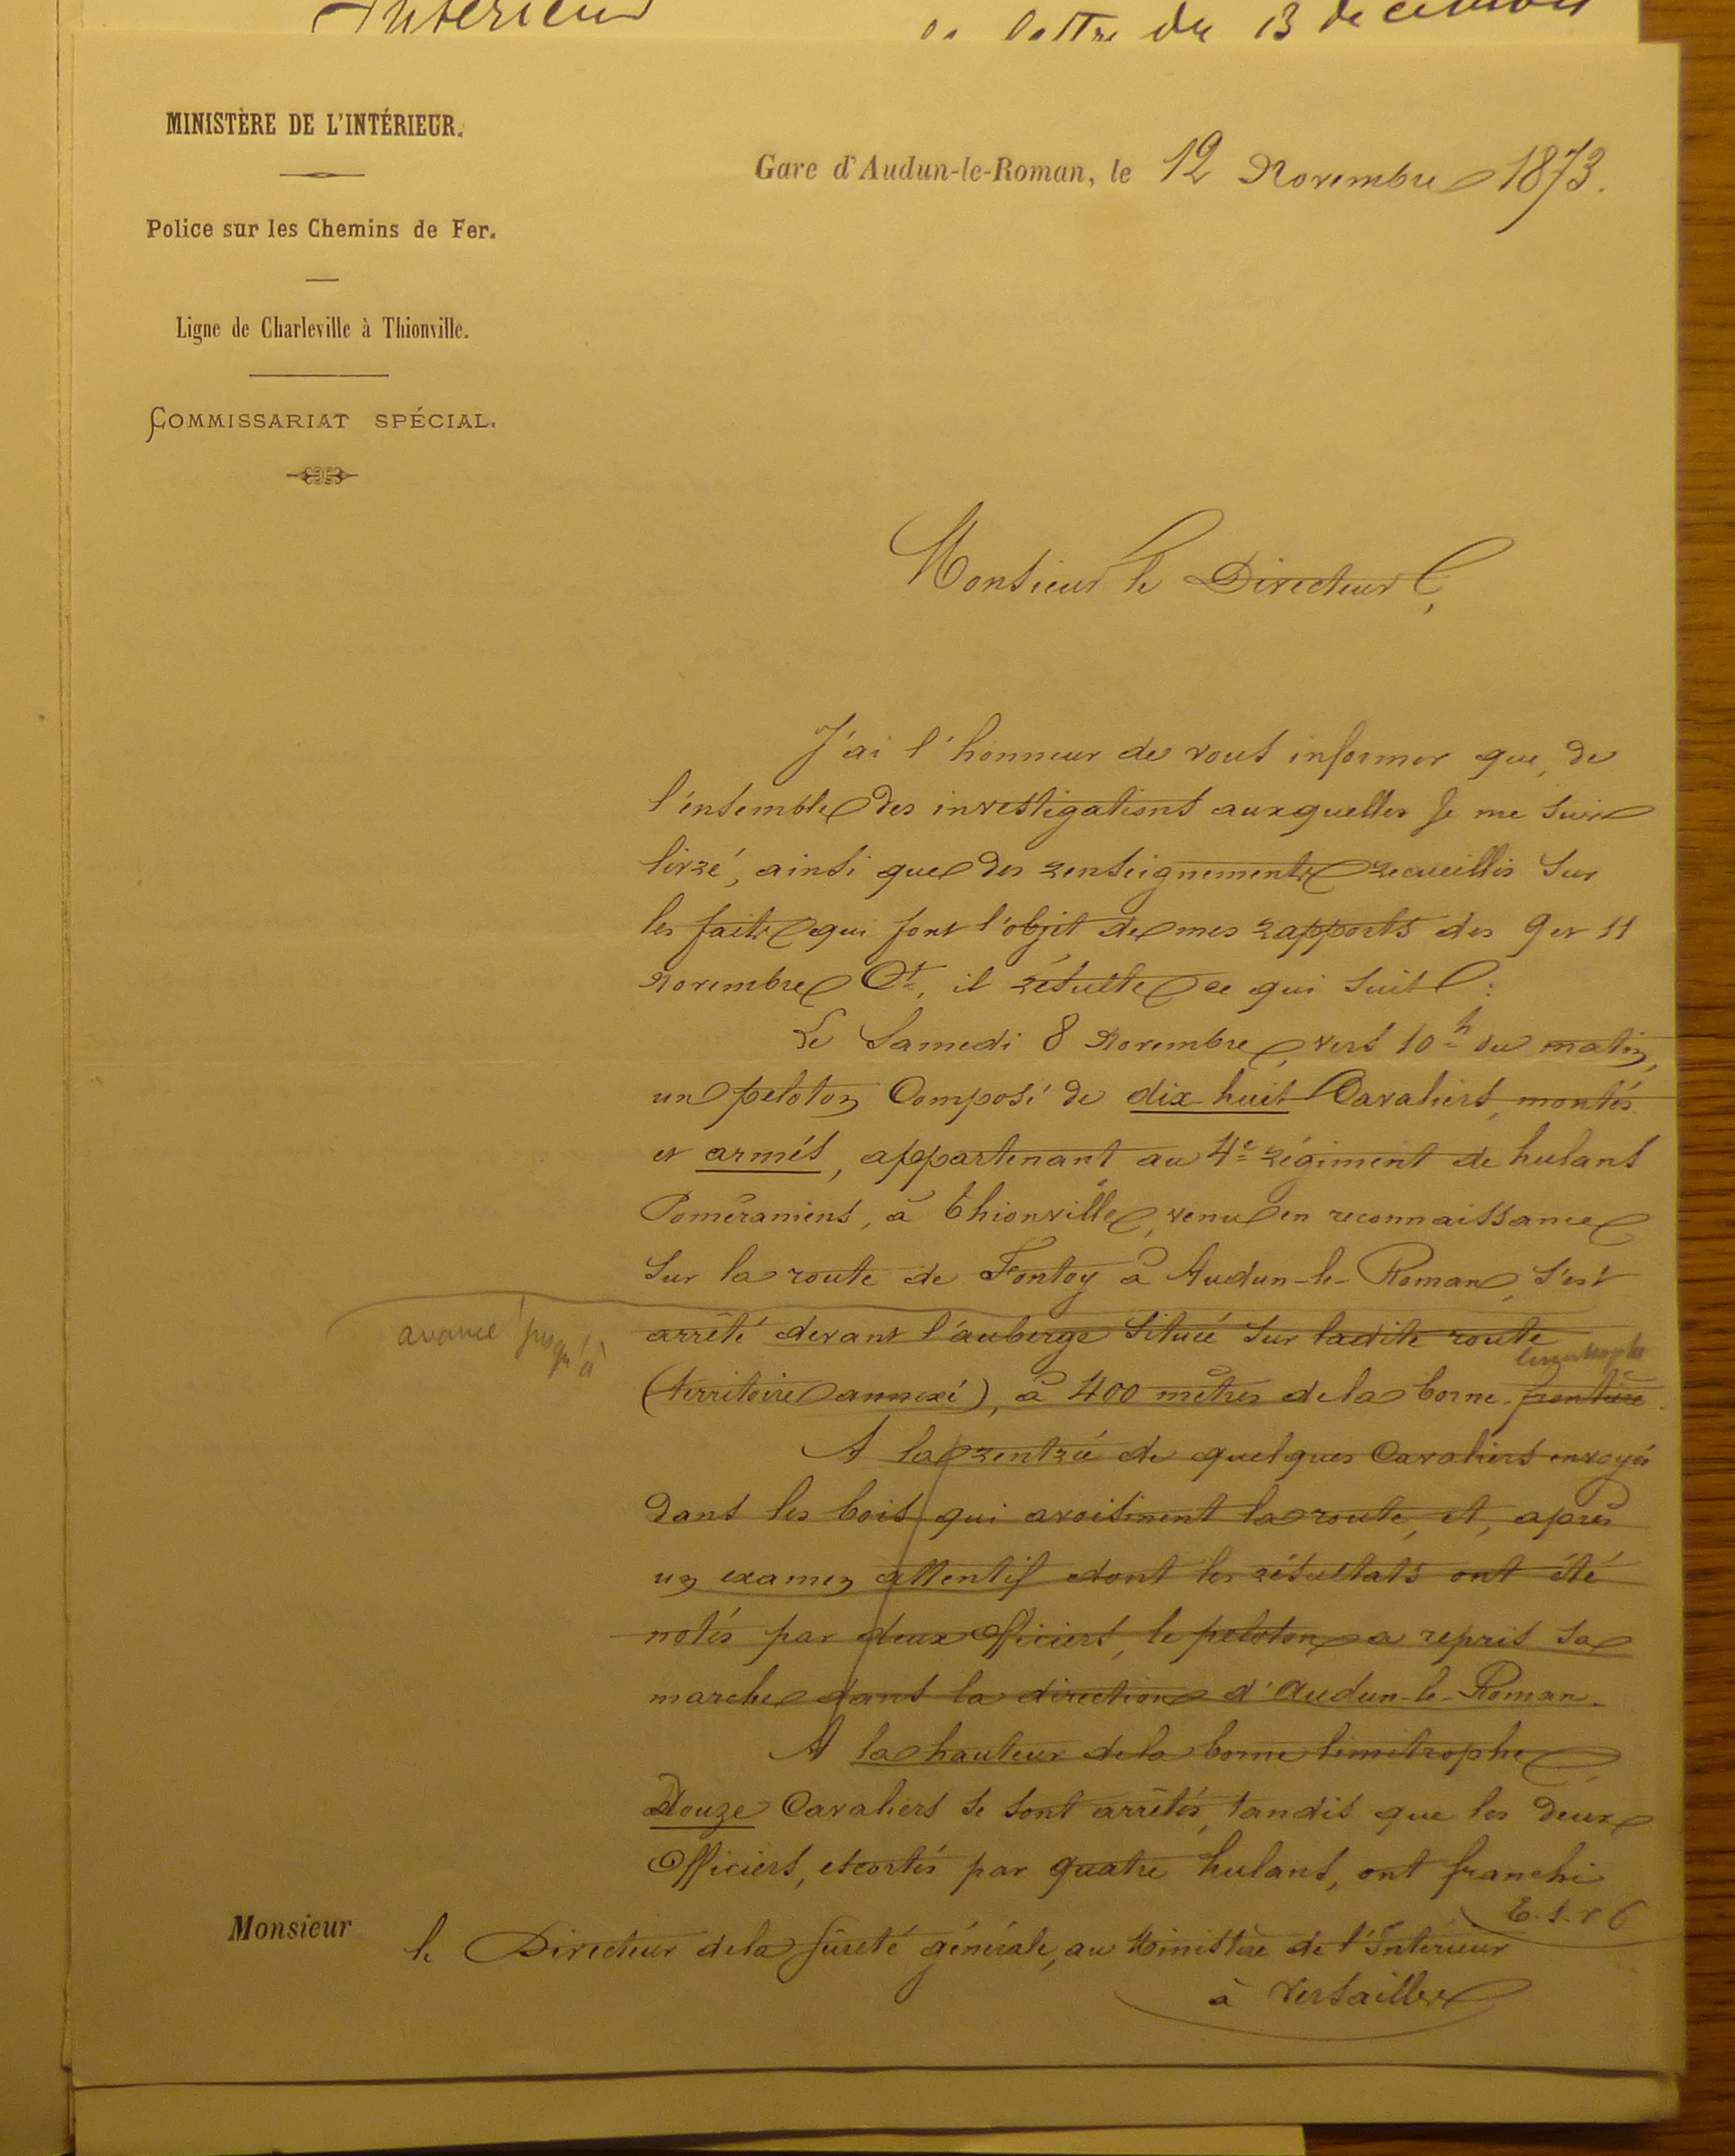 Intérieur
sa lettre du 13 décembre
MINISTÈRE DE L'INTÉRIEUR.
Police sur les Chemins de Fer.
Ligne de Charleville à Thionville.
COMMISSARIAT SPÉCIAL.
Gare d'Audun-le-Roman, le 12 Novembre 1873.
Monsieur le Directeur,
J'ai l'honneur de vous informer que, de
l'ensemble des investigations auxquelles je me suis
livré, ainsi que des renseignements recueillis sur
les faits qui font l'objet de mes rapports des 9 et 11
Novembre Ct, il résulte ce qui suit :
Le Samedi 8 Novembre, vers 10h du matin,
un peloton composé de dix huit Cavaliers, montés
et armés, appartenant au 4e régiment de hulans
Poméraniens, à Thionville, venu en reconnaissance
sur la route de Fontoy à Audun-le-Roman, s'est
avancé jusqu'à
arrêté devant l'auberge située sur ladite route
limitrophe
(territoire annexé), à 400 mètres de la borne-frontière.
A la rentrée de quelques Cavaliers envoyés
dans les bois qui avoisinent la route, et, après
un examen attentif dont les résultats ont été
notés par deux Officiers, le peloton a repris sa
marche dans la direction d'Audun-le-Roman.
A la hauteur de la borne limitrophe
Douze Cavaliers se sont arrêtés, tandis que les deux
Officiers, escortés par quatre hulans, ont franchi
Monsieur le Directeur de la Sûreté générale, au Ministère de l'Intérieur
à Versailles